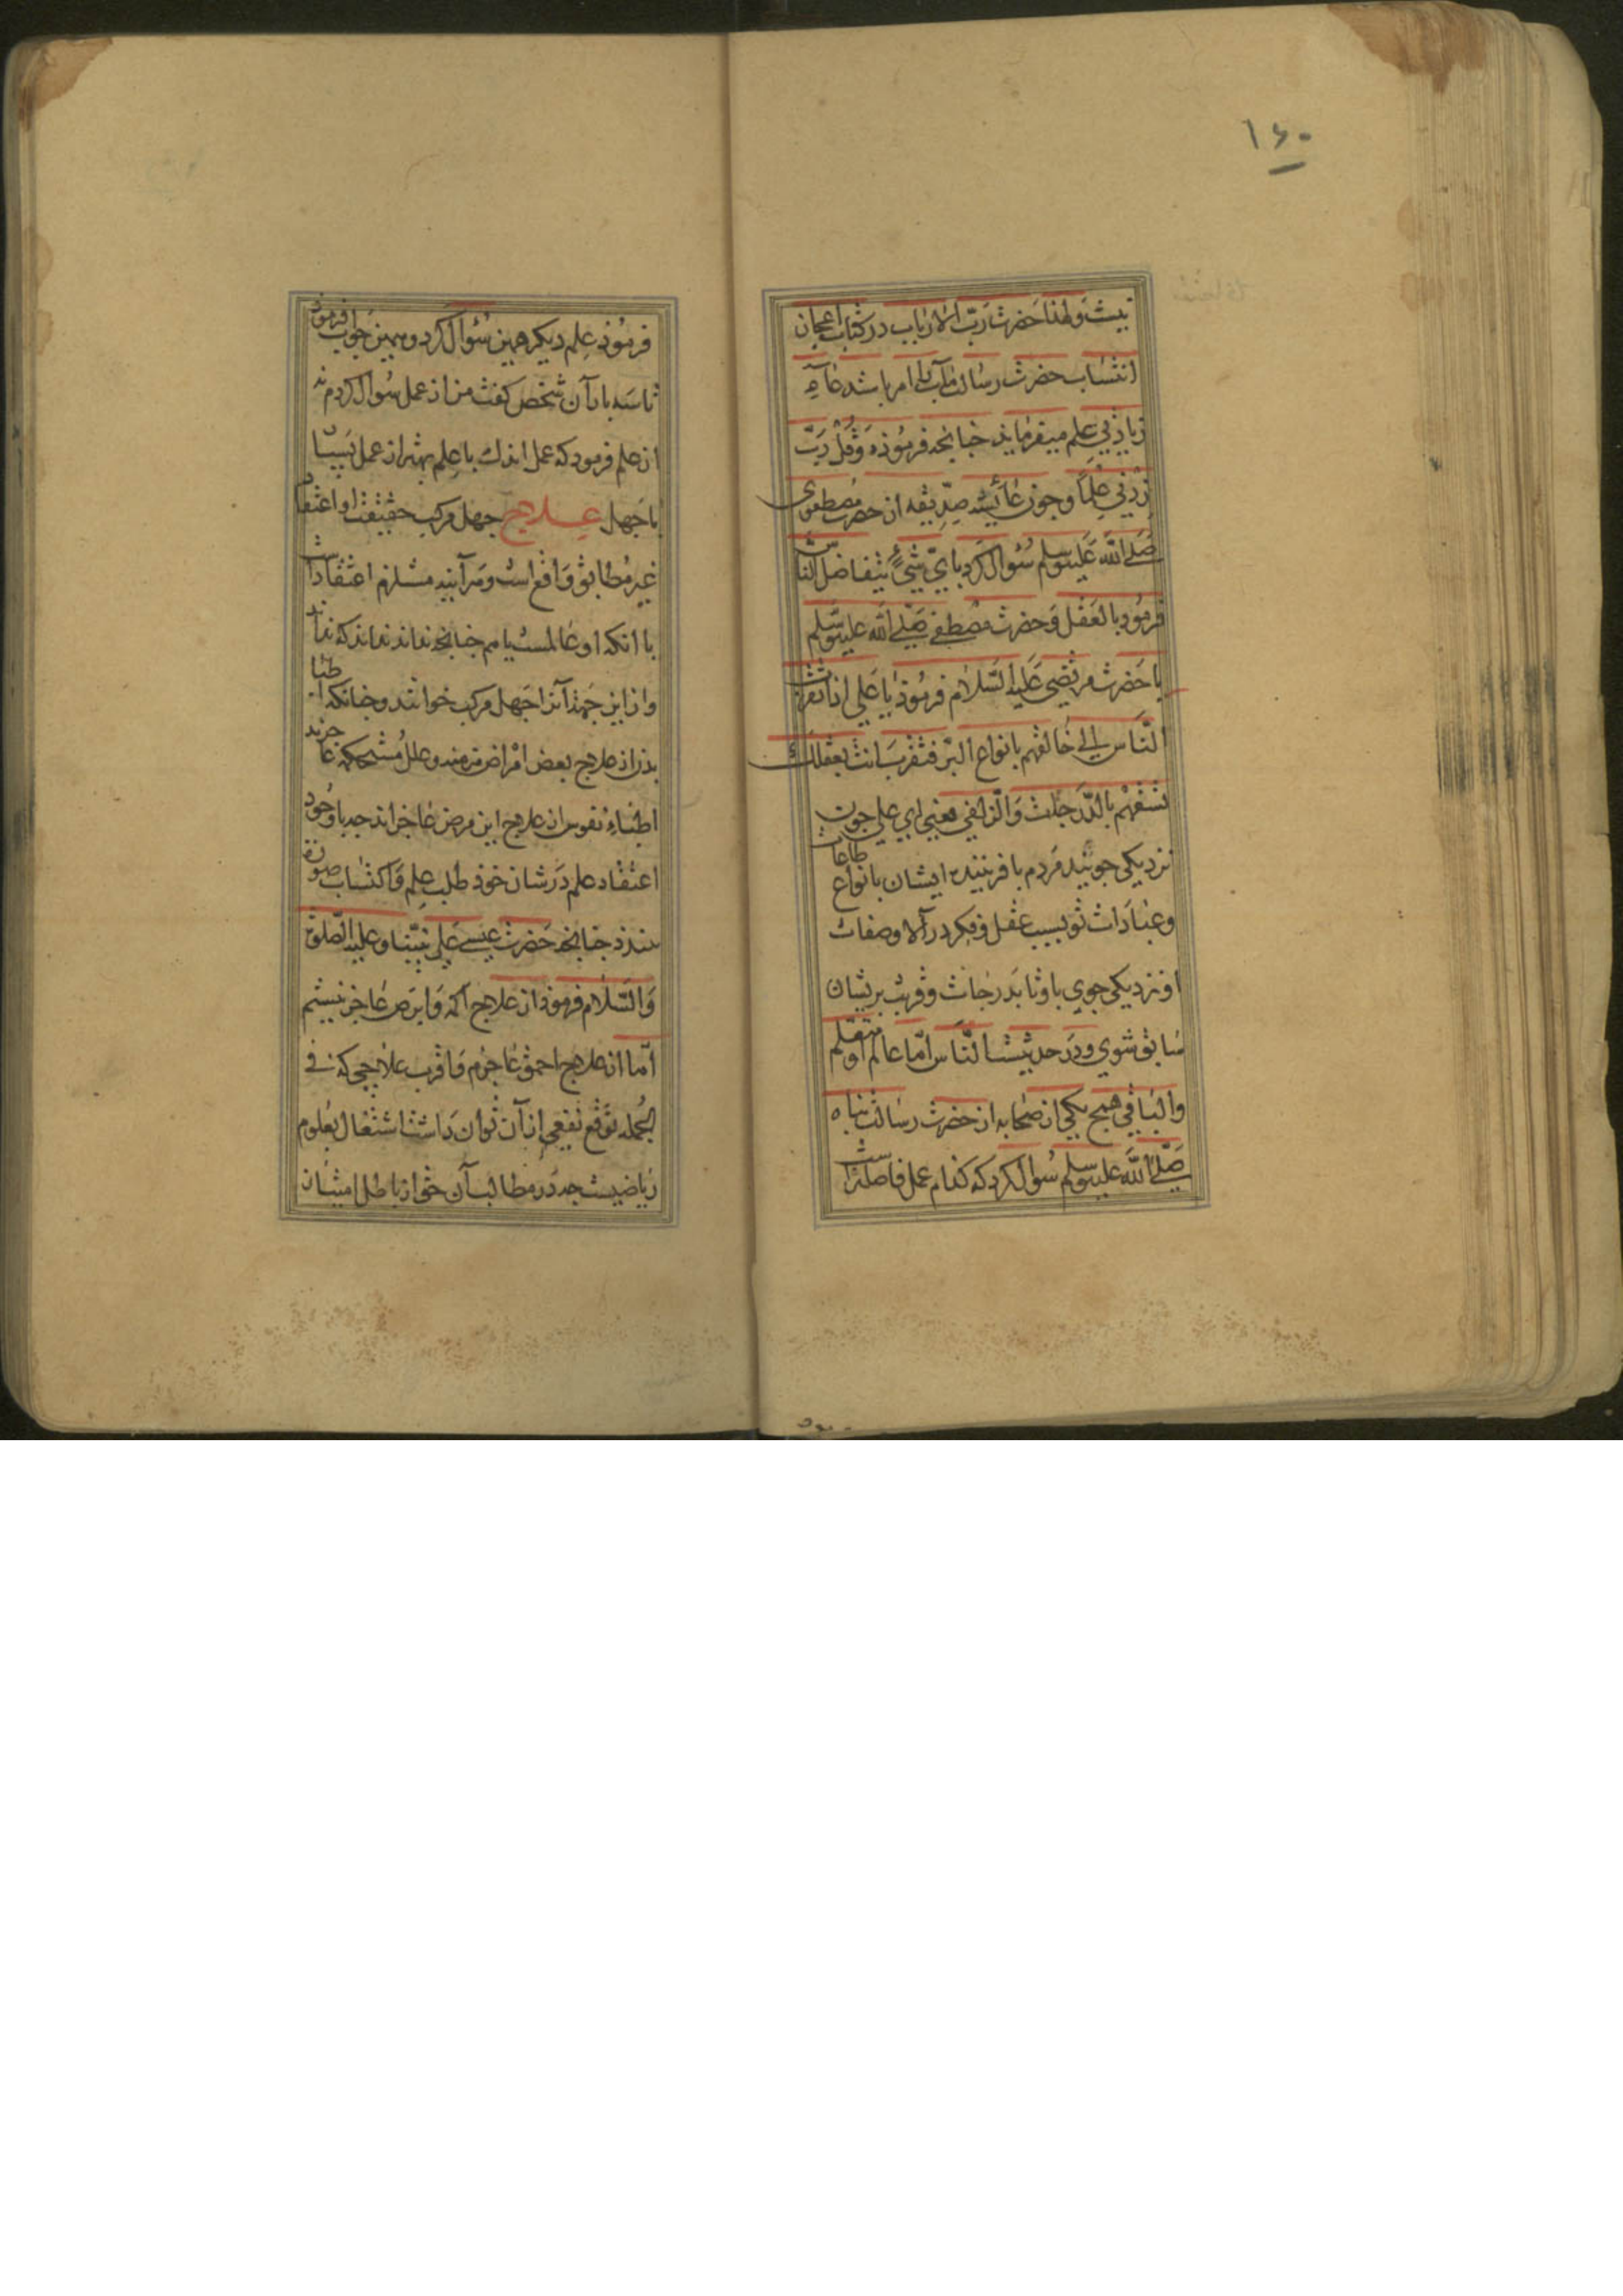 ۱۶۰
نیست ولهذا حضرت ربّ الارباب در کتاب اعجاز
انتساب حضرت رسالت مآب را امر باشد عاء
زیادتی علم میفرماید چنانچه فرموذه وَقُلْ رَبِّ
زِدْنِي عِلْمًا وچون عائیشه صدّیقه از حضرت مصطفوی
صَلَّى اللّٰه عَلَيه وسلم سُؤال کرد بايّ شئٍ يتفاضل الناس
فرمُود بالعقل وَحضرت مصطفی صَلَّى اللّٰه عليه وسَلّم
با حَضرت مرتضی عَلَيه السّلام فرموُذ یا عَلي اذا تقرّبت
النّاس الی خالقهم بانواع البرّ فتقرّب انت بعقلك
تسبقهم بالدّرجات وَالزّلفی معنی ای علی چون
نزدیکی جویند مَردم بافریننده ایشان بانواع طاعات
وعبادات تو بسبب عقل وفکر در آلا وصفات
او نزدیکی جوی باو تا بدَرجات وقربت بریشان
سَابق شوی ودَر حدیثست النّاس امّا عالم او متعلّم
والباقي همج یکی از صَحابه از حضرت رسالت پناه
صَلَّى اللّٰه عليه وسلم سُوال کرد که کدام عمل فاضلتراست
فرمُوذ عِلم دیکر همین سُؤال کرد وهمین جَواب فرمُوذ
تا سَه بار آن شخص کفت من از عمل سُوال کردم نه
از علم فرمود که عمل اندك با عِلم بهتر از عمل بَسیار
با جَهل عــلاج جهل مرکب حقیقت او اعتقاد
غیر مُطابق وَاقع است وهرآینه مستلزم اعتقاداست
باانکه او عالمست پاهم چنانچه نداند نداند که نداند
واز این جَهة آنرا جَهل مرکب خوانند وچنانکه اطبا
بدن از علاج بعض امراض مزمنه وعلل مُستحکمه عاجزند
اطبّاءِ نفوس از علاج این مرض عَاجز اند چه با وُجود
اعتقاد علم دَر شان خوذ طلب عِلم وَاکتساب صورة
نبندذ چنانچه حَضرت عیسی عَلی نبیّنا وعليه الصّلوة
وَالسّلام فرموذ از علاج اکمه وَابرَص عَاجز نیستم
امّا از علاج احمق عَاجزم وَاقرب علاجی که فی
الجُمله توَقّع نفعی از آن توان دَاشت اشتغال بعُلوم
ریاضیست چه دَر مطالب آن حق از باطل امتیاز